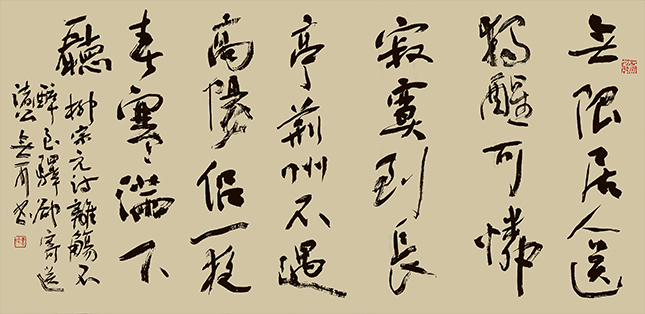 无限居人送
獨醒可憐
寂寞到長
亭荊州不遇
高陽侶一夜
春寒滿下
聽
柳宗元詩離觴不
醉至驛卻寄送
諸公